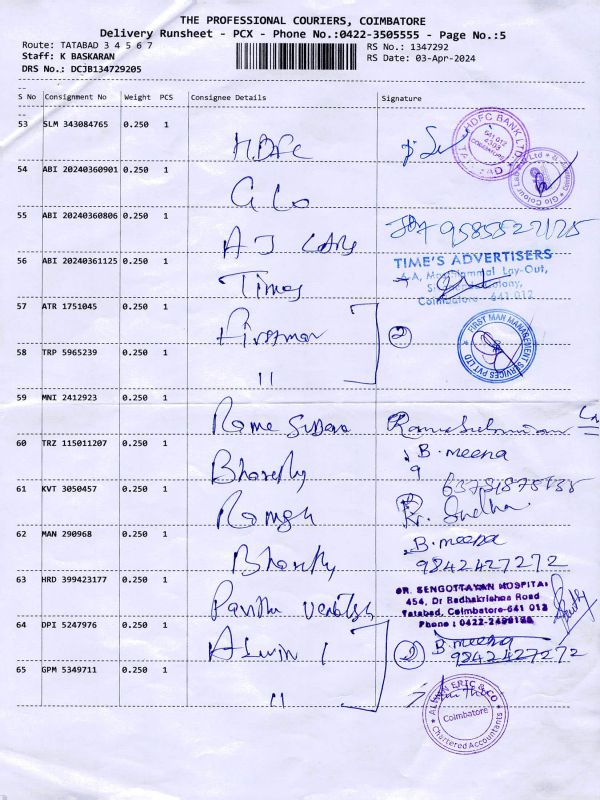 THE PROFESSIONAL COURIERS, COIMBATORE
Delivery Runsheet - PCX - Phone No.:0422-3505555 - Page No.:5
Route: TATABAD 3 4 5 6 7
RS No.: 1347292
Staff: K BASKARAN
RS Date: 03-Apr-2024
DRS No.: DCJB134729205
S No Consignment No Weight PCS Consignee Details Signature
53 SLM 343084765 0.250 1 HDFC
HDFC BANK LTD
54 ABI 20240360901 0.250 1 Glo
Glo Colour Lab
55 ABI 20240360806 0.250 1 AJ
56 ABI 20240361125 0.250 1 Times
TIME'S ADVERTISERS
Lay-Out,
Coimbatore - 641 012
57 ATR 1751045 0.250 1 Firstman 2
FIRST MAN MANAGEMENT SERVICES PVT LTD
58 TRP 5965239 0.250 1 "
59 MNI 2412923 0.250 1
60 TRZ 115011207 0.250 1 B. meena
61 KVT 3050457 0.250 1
62 MAN 290968 0.250 1 B. meena
9842427272
63 HRD 399423177 0.250 1
DR. SENGOTTAYAN HOSPITAL
454, Dr Radhakrishna Road
Tatabad, Coimbatore-641 012
64 DPI 5247976 0.250 1 Alwin 2 B. meena
9842427272
65 GPM 5349711 0.250 1 "
ALWIN ERIC & CO
Coimbatore
Chartered Accountants